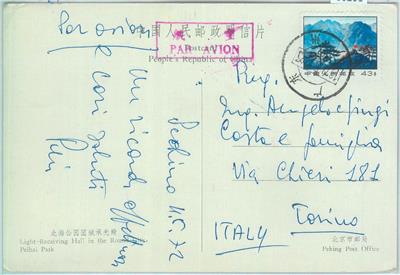 Par avion
中国人民邮政明信片
Postcard
航空
PAR AVION
People's Republic of China
中国人民邮政 43分
Pechino 11.5.72
Un ricordo affettuoso
e cari saluti
Egr.
Ing. Angelo
Costa e famiglia
Via Chieri 181
Torino
ITALY
北海公园团城承光殿
Light-Receiving Hall in the Round
Peihai Park
北京市邮局
Peking Post Office